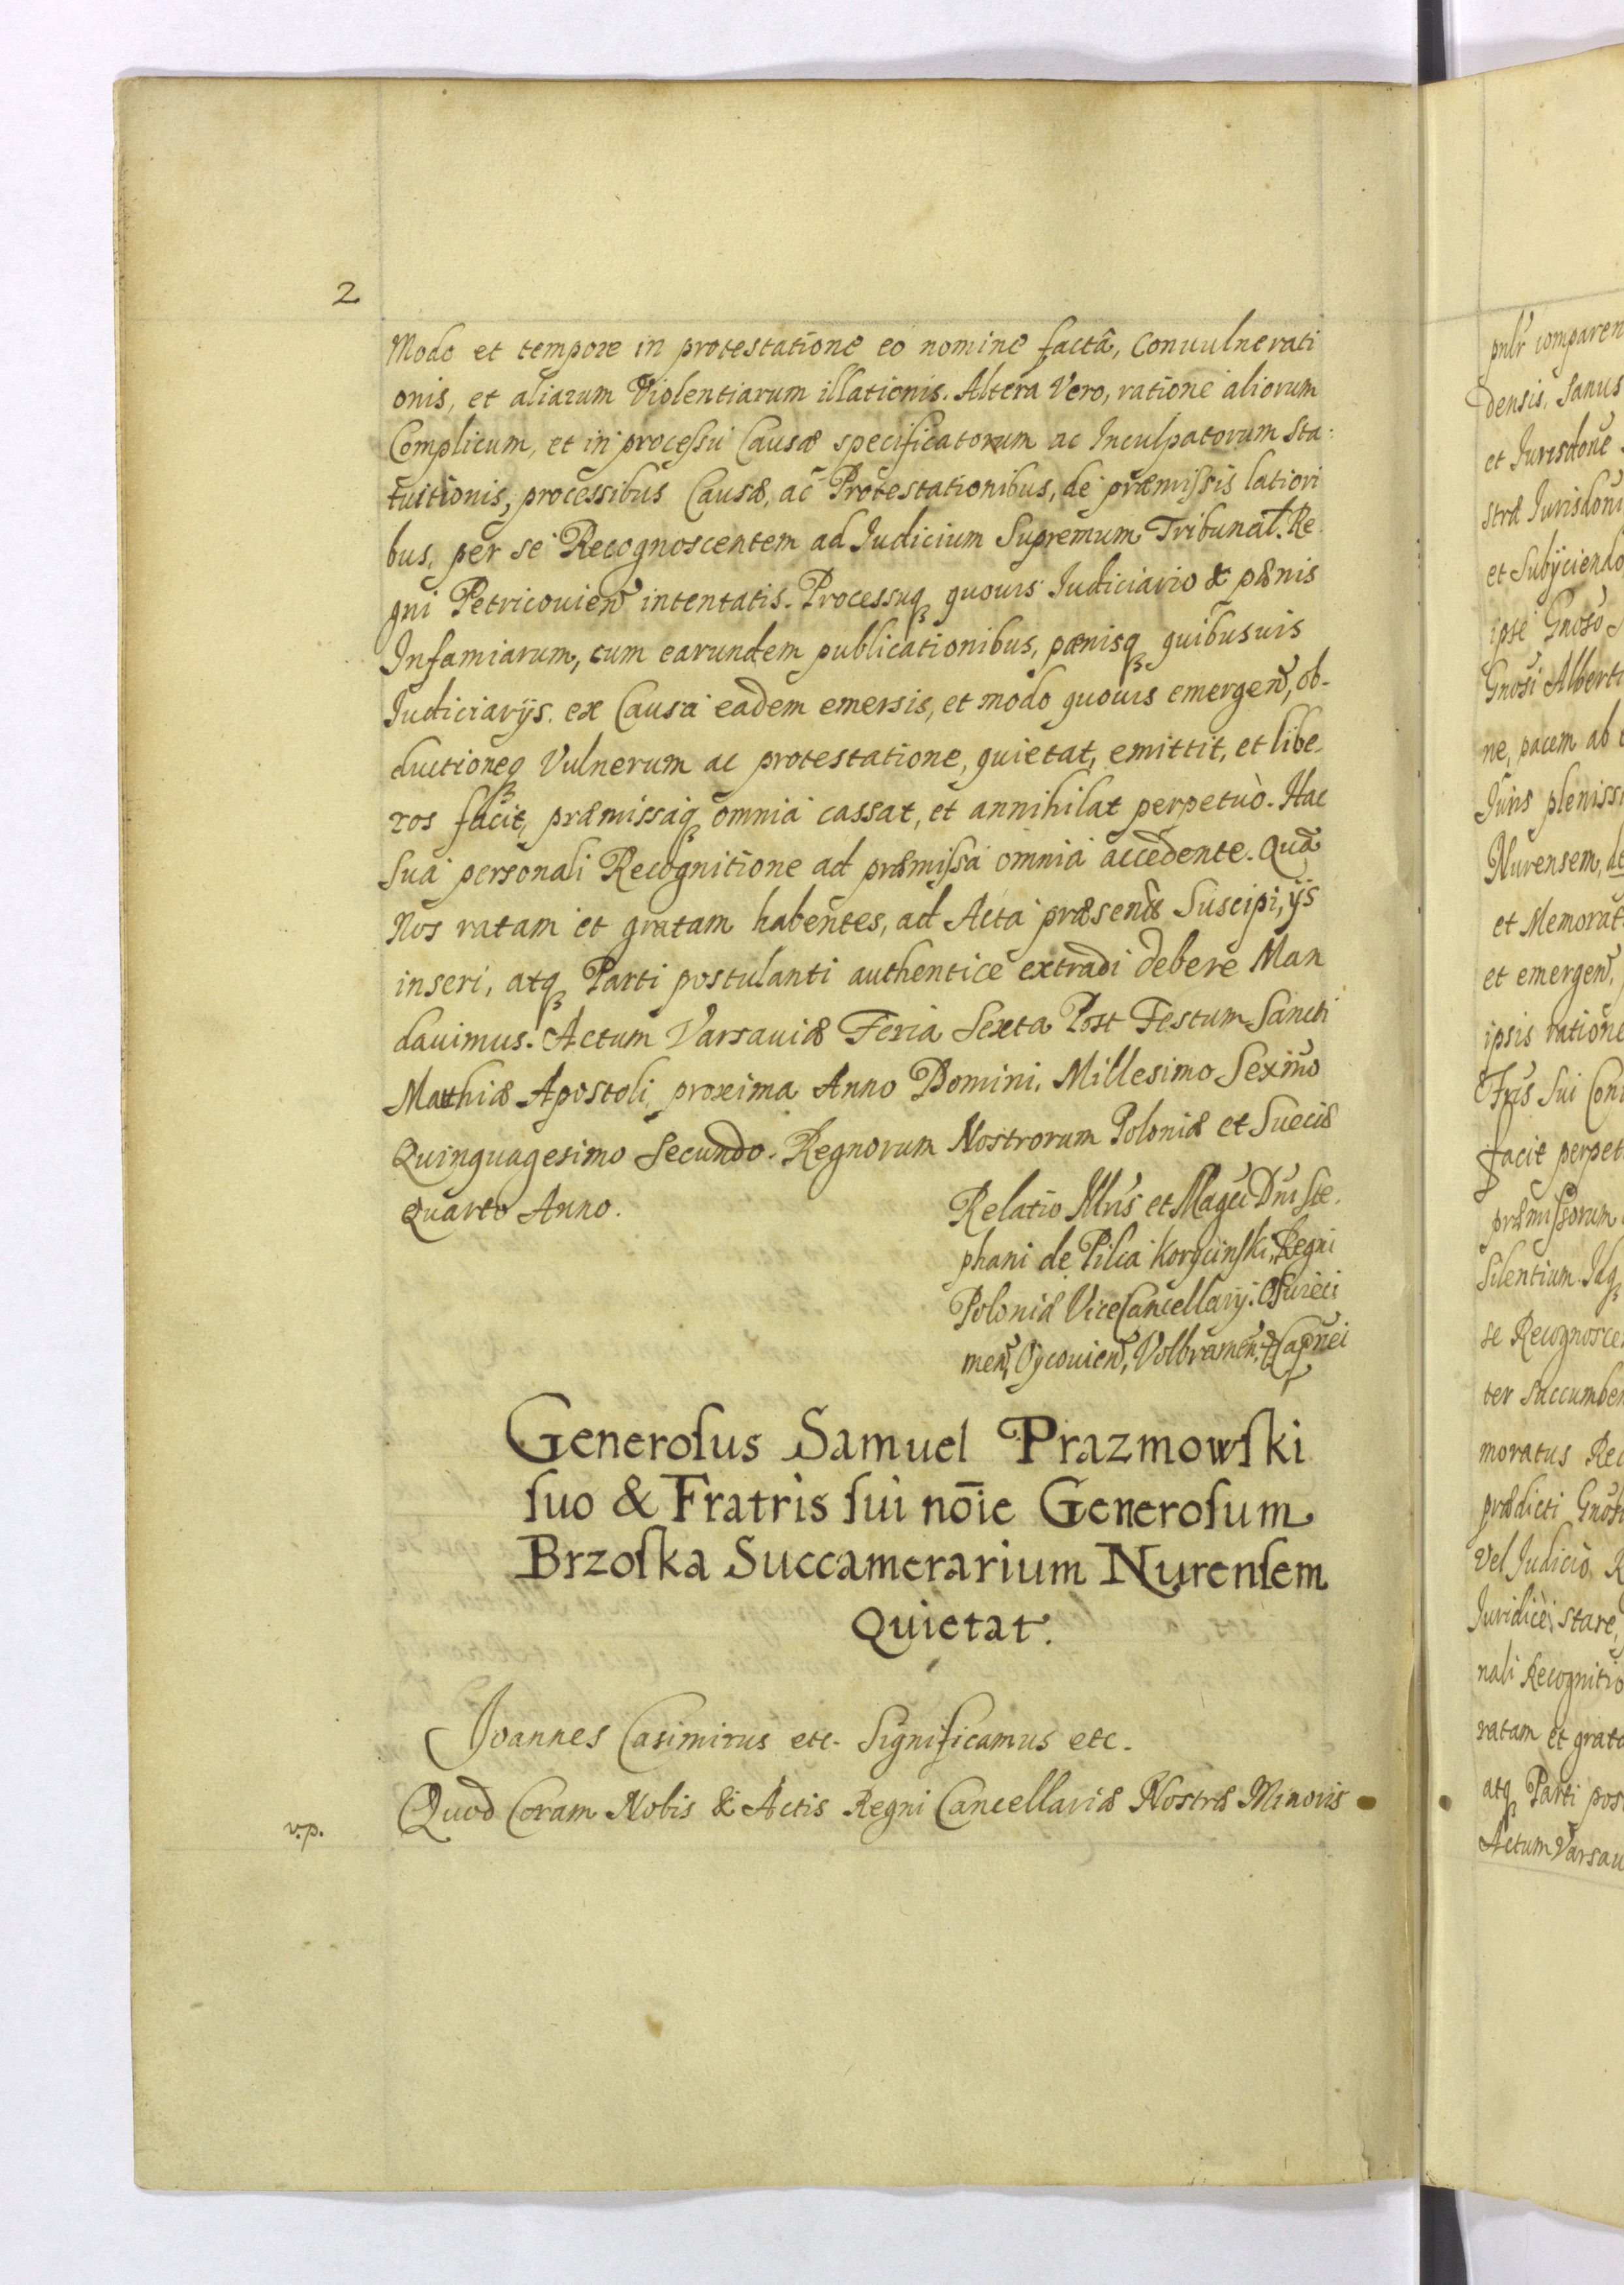 2
Modo et tempore in protestatione eo nomine factâ, Convulnerati
onis, et aliarum Violentiarum illationis. Altera Vero, ratione aliorum
Complicum, et in processu Causæ specificatorum ac Inculpatorum Sta:
tuitionis, processibus Causæ, ac Protestationibus, de præmissis latiori
bus, per se Recognoscentem ad Iudicium Supremum Tribunal. Re
gni Petricouien intentatis. Processuq quouis Iudiciario & pænis
Infamiarum, cum earundem publicationibus, pænisq quibusuis
Iudiciarijs. ex Causa eadem emersis, et modo quouis emergen, ob-
ductioneq Vulnerum ac protestatione, quietat, emittit, et libe-
ros facit, præmissaq omnia cassat, et annihilat perpetuò. Hac
Sua personali Recognitione ad præmissa omnia accedente. Quã
Nos ratam et gratam habentes, ad Acta præsentes Suscipi, ijs
inseri, atq Parti postulanti authentice extradi debere Man
davimus. Actum Varsaviæ Feria Sexta Post Festum Sancti
Matthiæ Apostoli proxima Anno Domini. Millesimo Sexmo
Quinquagesimo Secundo. Regnorum Nostrorum Poloniæ et Sueciæ
Quarto Anno.
Relatio Illris et Magci Dni Ste.
phani de Pilca Korycinski, Regni
Poloniæ ViceCancellarij. Osvieci
men, Oycouien, Volbramen, &
Generosus Samuel Prazmowski
suo & Fratris sui nōie Generosum
Brzoska Succamerarium Nurensem
Quietat.
Joannes Casimirus etc. Significamus etc.
Quod Coram Nobis & Actis Regni Cancellariæ Nostræ Minoris
v.p.
comparen
densis, Sanus
et Jurisdone
stræ Jurisdoni
et Subijciendo
ipse Gnoso
Gnosi Alberti
ne, pacem ab
Juris pleniss
Nurensem, de
et Memorat
et emergen,
ipsis ratione
Fris Sui Con
facit perpet
præmissorum
Silentium. Idq
se Recognosce
ter Saccumben
moratus Rec
prædicti Gnosi
Vel Judicio R
Juridice stare,
nali Recognitio
ratam et grata
atq Parti pos
Actum Varsav